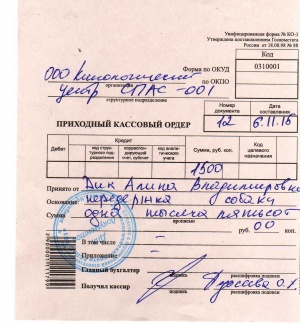 Унифицированная форма № КО-1
Утверждена постановлением Госкомстата
России от 18.08.98 № 88
Код
Форма по ОКУД 0310001
ООО Кинологический по ОКПО
организация
центр СПАС-001
структурное подразделение
Номер документа Дата составления
ПРИХОДНЫЙ КАССОВЫЙ ОРДЕР 12 6.11.15
Дебет Кредит Сумма, руб. коп. Код целевого назначения
код структурного подразделения корреспондирующий счет, субсчет код аналитического учета
1500
Принято от Дик Алина Владимировна
Основание: передержка собаки
Сумма одна тысяча пятьсот
прописью
руб. 00 коп.
В том числе –
Приложение –
Главный бухгалтер
подпись расшифровка подписи
Получил кассир
подпись расшифровка подписи